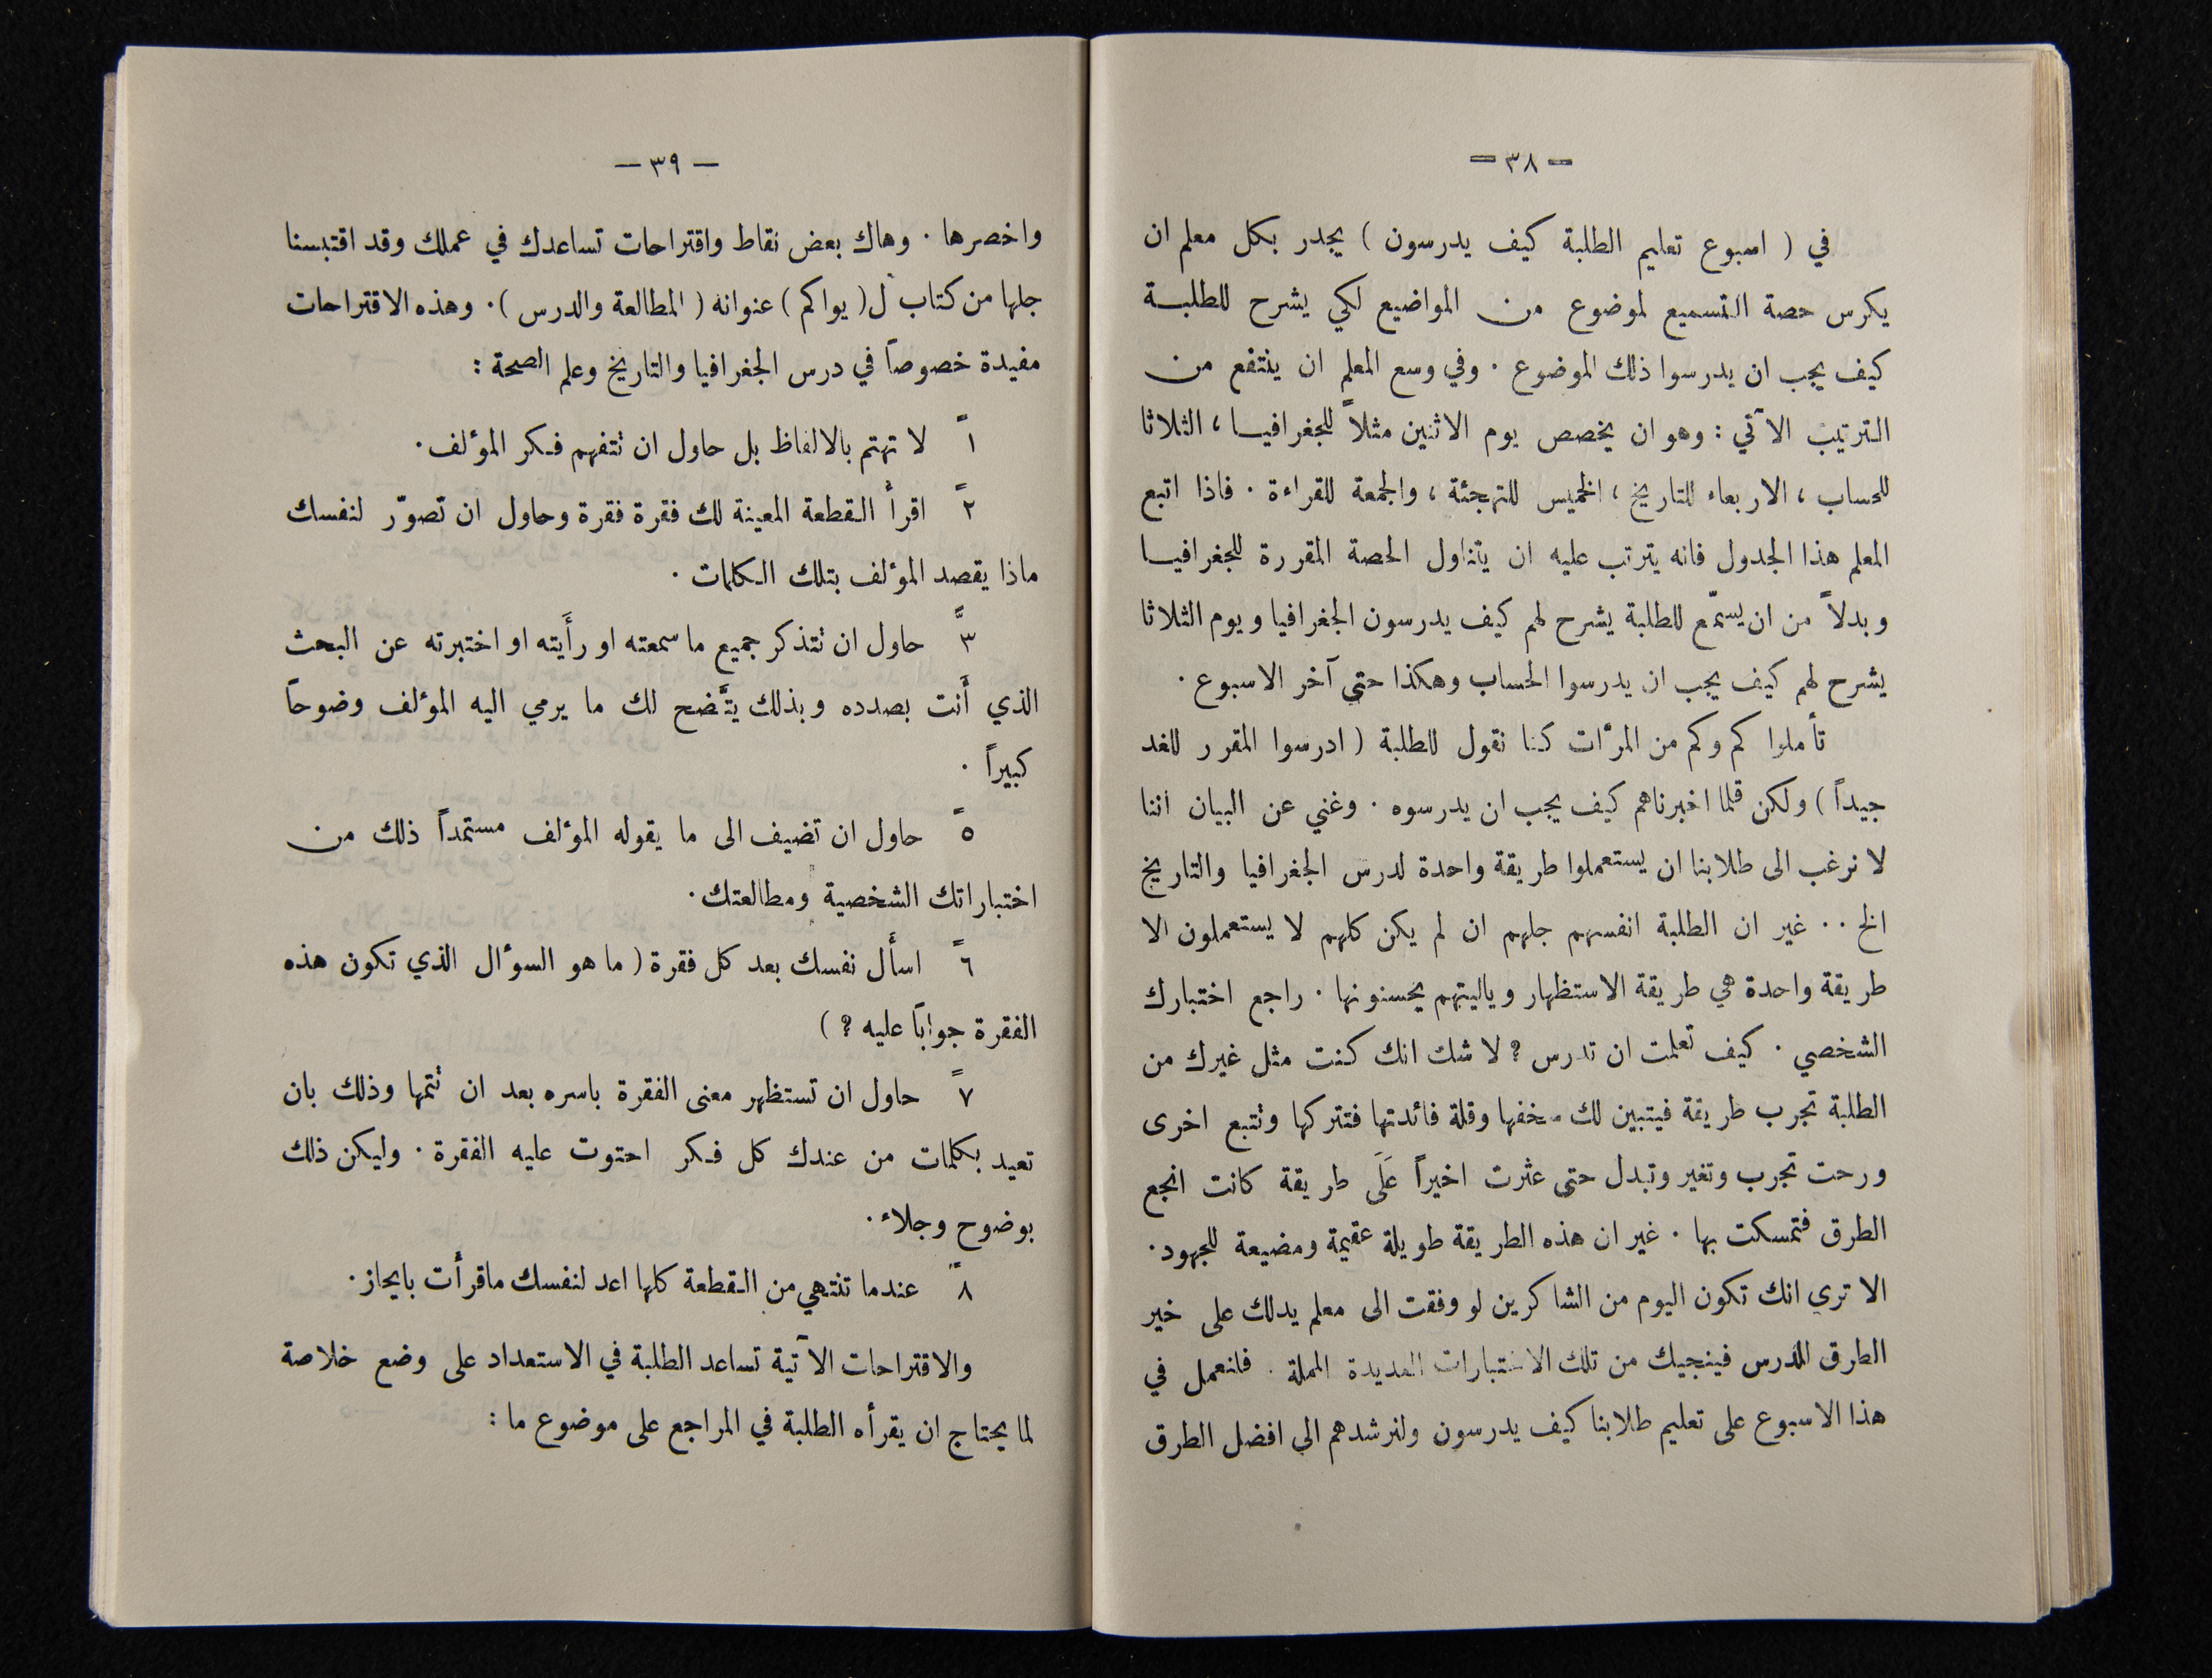 — ٣٨ —
في ( اسبوع تعليم الطلبة كيف يدرسون ) يجدر بكل معلم ان
يكرس حصة التسميع لموضوع من المواضيع لكي يشرح للطلبة
كيف يجب ان يدرسوا ذلك الموضوع . وفي وسع المعلم ان ينتفع من
الترتيب الآتي : وهو ان يخصص يوم الاثنين مثلاً للجغرافيا ، الثلاثا
للحساب ، الاربعاء للتاريخ ، الخميس للتهجئة ، والجمعة للقراءة . فاذا اتبع
المعلم هذا الجدول فانه يترتب عليه ان يتناول الحصة المقررة للجغرافيا
وبدلاً من ان يسمّع للطلبة يشرح لهم كيف يدرسون الجغرافيا ويوم الثلاثا
يشرح لهم كيف يجب ان يدرسوا الحساب وهكذا حتى آخر الاسبوع .
تأملوا كم وكم من المرّات كنا نقول للطلبة ( ادرسوا المقرر للغد
جيداً ) ولكن قلما اخبرناهم كيف يجب ان يدرسوه . وغني عن البيان اننا
لا نرغب الى طلابنا ان يستعملوا طريقة واحدة لدرس الجغرافيا والتاريخ
الخ .. غير ان الطلبة انفسهم جلهم ان لم يكن كلهم لا يستعملون الا
طريقة واحدة هي طريقة الاستظهار وياليتهم يحسنونها . راجع اختبارك
الشخصي . كيف تعلمت ان تدرس ؟ لا شك انك كنت مثل غيرك من
الطلبة تجرب طريقة فيتبين لك سخفها وقلة فائدتها فتتركها وتتبع اخرى
ورحت تجرب وتغير وتبدل حتى عثرت اخيراً عَلَى طريقة كانت انجع
الطرق فتمسكت بها . غير ان هذه الطريقة طويلة عقيمة ومضيعة للجهود .
الا ترى انك تكون اليوم من الشاكرين لو وفقت الى معلم يدلك على خير
الطرق للدرس فينجيك من تلك الاختبارات العديدة المملة . فلنعمل في
هذا الاسبوع على تعليم طلابنا كيف يدرسون ولنرشدهم الى افضل الطرق
— ٣٩ —
واخصرها . وهاك بعض نقاط واقتراحات تساعدك في عملك وقد اقتبسنا
جلها من كتاب ل( يواكم ) عنوانه ( المطالعة والدرس ) . وهذه الاقتراحات
مفيدة خصوصاً في درس الجغرافيا والتاريخ وعلم الصحة :
١ً لا تهتم بالالفاظ بل حاول ان تتفهم فكر المؤلف .
٢ً اقرأ القطعة المعينة لك فقرة فقرة وحاول ان تصوّر لنفسك
ماذا يقصد المؤلف بتلك الكلمات .
٣ً حاول ان تتذكر جميع ما سمعته او رأَيته او اختبرته عن البحث
الذي أَنت بصدده وبذلك يتَّضح لك ما يرمي اليه المؤلف وضوحاً
كبيراً .
٥ً حاول ان تضيف الى ما يقوله المؤلف مستمداً ذلك من
اختباراتك الشخصية ومطالعتك .
٦ً اسأَل نفسك بعد كل فقرة ( ما هو السؤال الذي تكون هذه
الفقرة جواباً عليه ؟ )
٧ً حاول ان تستظهر معنى الفقرة باسره بعد ان تتمها وذلك بان
تعيد بكلمات من عندك كل فكر احتوت عليه الفقرة . وليكن ذلك
بوضوح وجلاء .
٨ً عندما تنتهي من القطعة كلها اعد لنفسك ماقرأَت بايجاز .
والاقتراحات الآتية تساعد الطلبة في الاستعداد على وضع خلاصة
لما يحتاج ان يقرأه الطلبة في المراجع على موضوع ما :